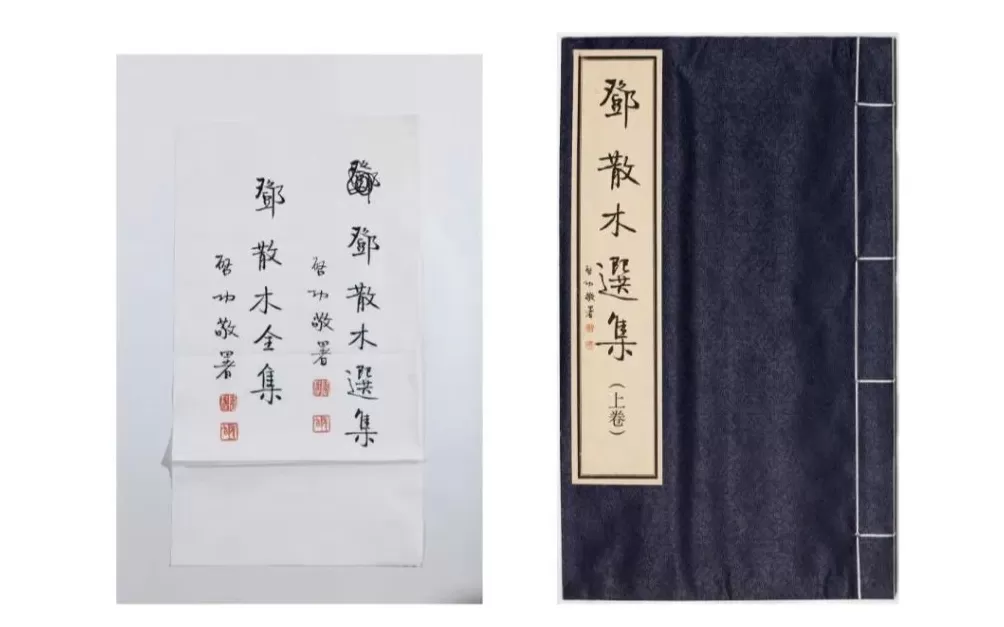 鄧散木選集
啓功敬署
鄧散木全集
啓功敬署
鄧散木選集
(上卷)
啓功敬署